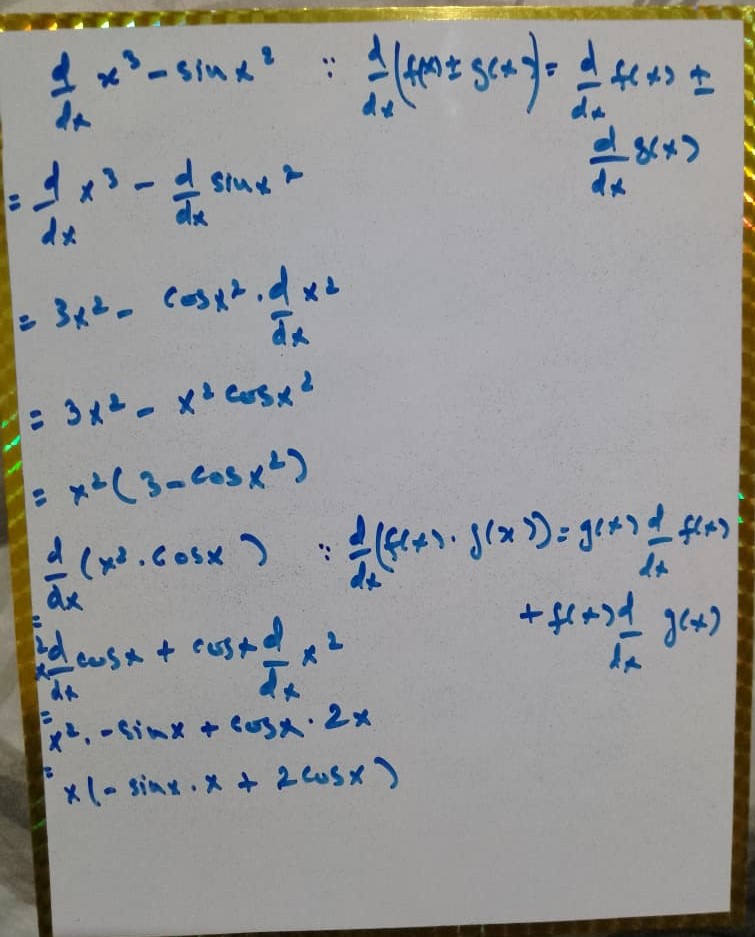 d/dx x³ - sin x² ∵ d/dx (f(x) ± g(x)) = d/dx f(x) ±
d/dx g(x)
= d/dx x³ - d/dx sin x²
= 3x² - cos x² . d/dx x²
= 3x² - x² cos x²
= x² (3 - cos x²)
d/dx (x² . cos x) ∵ d/dx (f(x) . g(x)) = g(x) d/dx f(x)
+ f(x) d/dx g(x)
= x² d/dx cos x + cos x d/dx x²
= x² . - sin x + cos x . 2x
= x (- sin x . x + 2 cos x)